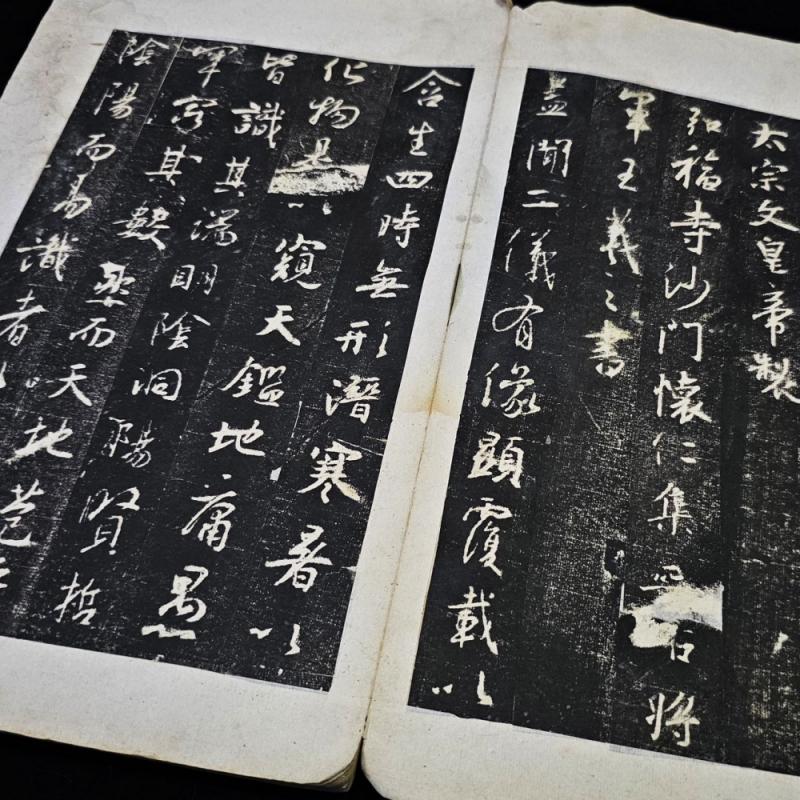 太宗文皇帝製
弘福寺沙門懷仁集右將
軍王羲之書
蓋聞二儀有像顯覆載以
含生四時無形潛寒暑以
化物是以窺天鑑地庸愚
皆識其端明陰洞陽賢哲
罕窮其數然而天地苞
陰陽而易識者